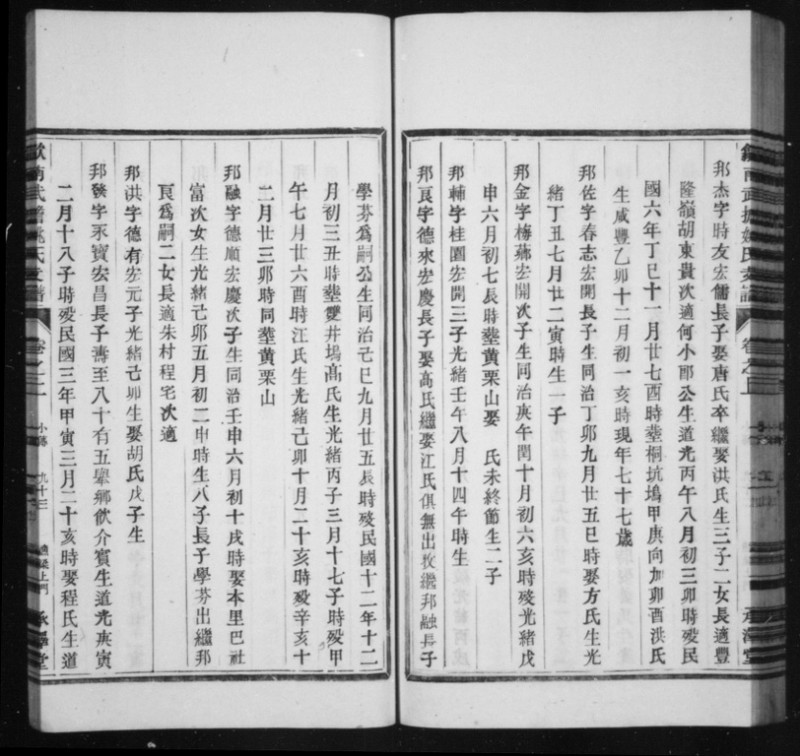 邦杰字時友宏儒長子娶唐氏卒繼娶洪氏生三子二女長適豐
隆嶺胡東貴次適何小郎公生道光丙午八月初三卯時殁民
國六年丁巳十一月廿七酉時塟桐坑塢甲庚向加卯酉洪氏
生咸豐乙卯十二月初一亥時現年七十七歲
邦佐字春志宏開長子生同治丁卯九月廿五巳時娶方氏生光
緒丁丑七月廿二寅時生一子
邦金字梅蘂宏開次子生同治庚午閏十月初六亥時殁光緒戊
申六月初七辰時塟黄栗山娶 氏未終節生二子
邦輔字桂園宏開三子光緒壬午八月十四午時生
邦良字德來宏慶長子娶高氏繼娶江氏俱無出枚繼邦融長子
學芬爲嗣公生同治己巳九月廿五辰時殁民國十二年十二
月初三丑時塟雙井塢高氏生光緒丙子三月十七子時殁甲
午七月廿六酉時江氏生光緒己卯十月二十亥時殁辛亥十
二月廿三卯時同塟黄栗山
邦融字德順宏慶次子生同治壬申六月初十戌時娶本里巴社
富次女生光緒己卯五月初二申時生八子長子學芬出繼邦
良爲嗣二女長適朱村程宅次適
邦洪字德有宏元子光緒己卯生娶胡氏戊子生
邦發字永寶宏昌長子壽至八十有五舉鄉飲介賓生道光庚寅
二月十八子時殁民國三年甲寅三月二十亥時娶程氏生道
卷之二
九十三
承澤堂